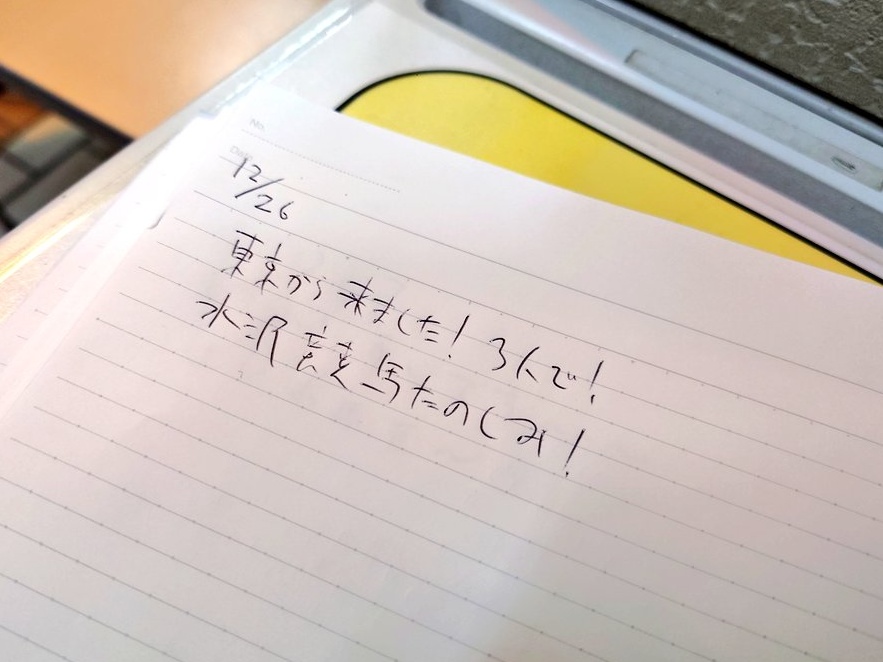 No.
Date
12/26
東京から来ました！3人で！
水沢競馬たのしみ！